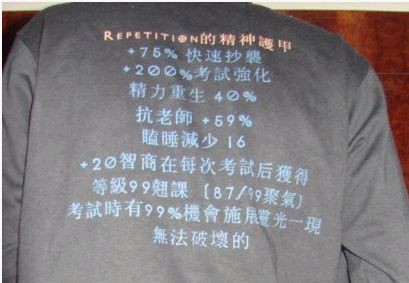 REPETITION的精神護甲
+75% 快速抄襲
+200%考試強化
精力重生 40%
抗老師 +59%
瞌睡減少 16
+20智商在每次考試后獲得
等級99翹課 (87/99聚氣)
考試時有99%機會施展電光一現
無法破壞的